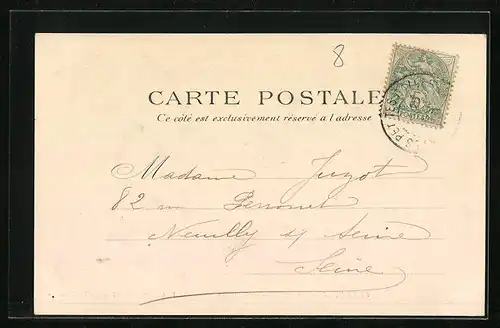 8
CARTE POSTALE
Ce côté est exclusivement réservé a l'adresse
Madame Juzot
82 rue Perronet
Neuilly s/ Seine
Seine